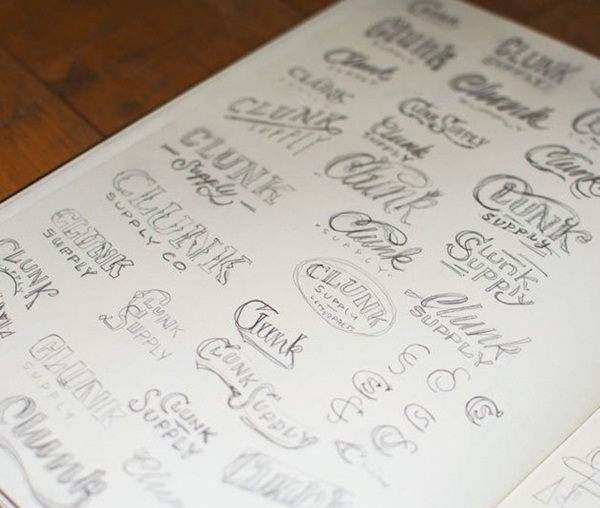 Clunk
CLUNK
Clunk
CLUNK
SUPPLY
Clunk
Clunk
SUPPLY
CLUNK
CLUNK
SUPPLY
Clunk
SUPPLY
CLUNK
Supply
Clunk
CLUNK
SUPPLY
CLUNK
SUPPLY CO
Clunk
SUPPLY
Clunk
Supply
CLUNK
SUPPLY
CLUNK
SUPPLY
LETTERPRESS
Clunk
SUPPLY
CLUNK
CLUNK
SUPPLY
Clunk
CLUNK
SUPPLY
CLUNK SUPPLY
CLUNK
SUPPLY
Clunk